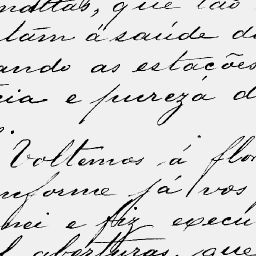 mattas, que tão
ltam á saúde do
ando as estações
cia e pureza d
Voltemos á flor
nforme já vos
nei e fiz execu
aberturas, que